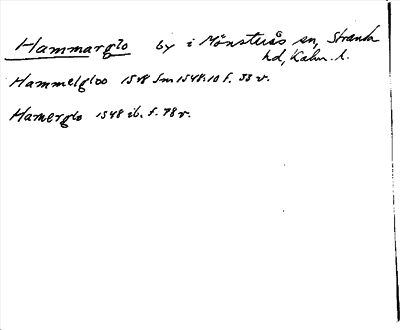 Hammarglo by i Mönsterås sn, Stranda
hd, Kalm. l.
Hammelgloo 1548 Sm 1548:10 f. 53 v.
Hamerglo 1548 ib. f. 78 v.